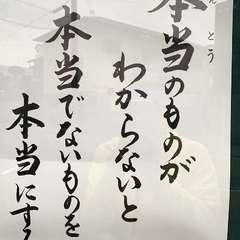 本当のものが
んとう
わからないと
本当でないものを
本当にする